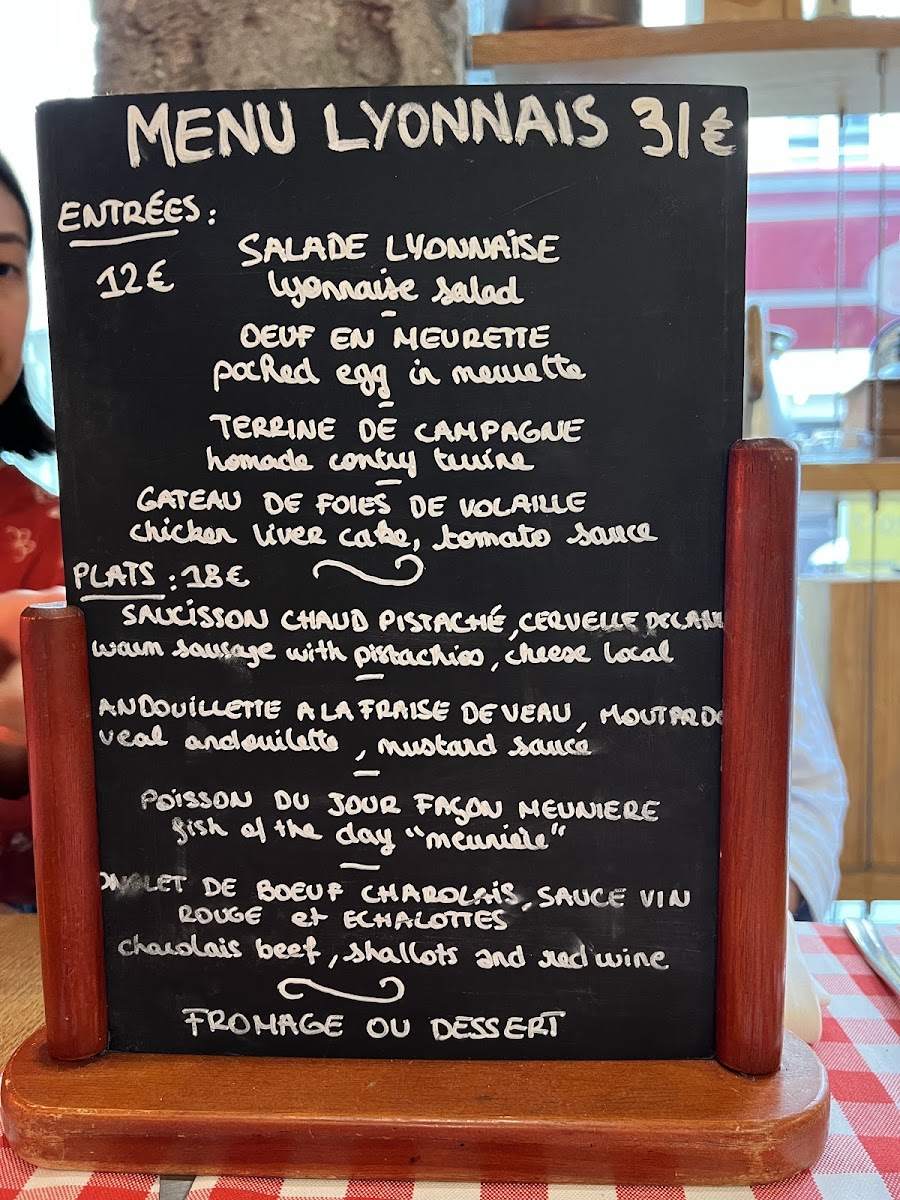 MENU LYONNAIS 31€
ENTRÉES :
12€
SALADE LYONNAISE
lyonnaise salad
OEUF EN MEURETTE
poched egg in meurette
TERRINE DE CAMPAGNE
homade contry terrine
GATEAU DE FOIES DE VOLAILLE
chicken liver cake, tomato sauce
PLATS : 18€
SAUCISSON CHAUD PISTACHÉ, CERVELLE
warm sausage with pistachios, cheese local
ANDOUILLETTE A LA FRAISE DE VEAU,
veal andouilette, mustard sauce
POISSON DU JOUR FAÇON MEUNIERE
fish of the day "meunière"
DE BOEUF CHAROLAIS, SAUCE VIN
ROUGE et ECHALOTTES
charolais beef, shallots and red wine
FROMAGE OU DESSERT